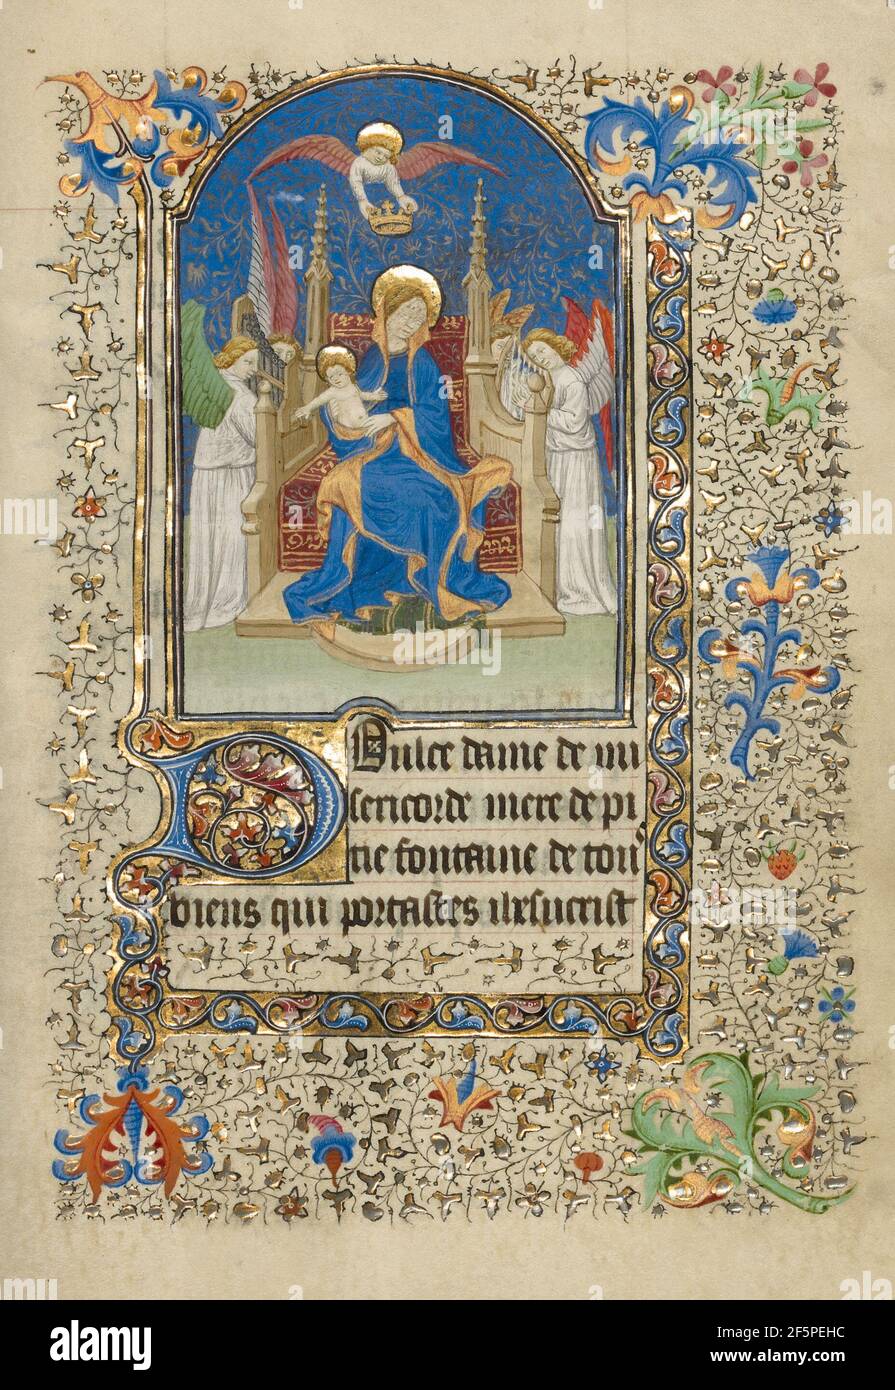 Dulce dame de mi
sericorde mere de pi
tie fontaine de tous
biens qui portastes ihesucrist
alamy
Image ID: 2F5PEHC
www.alamy.com